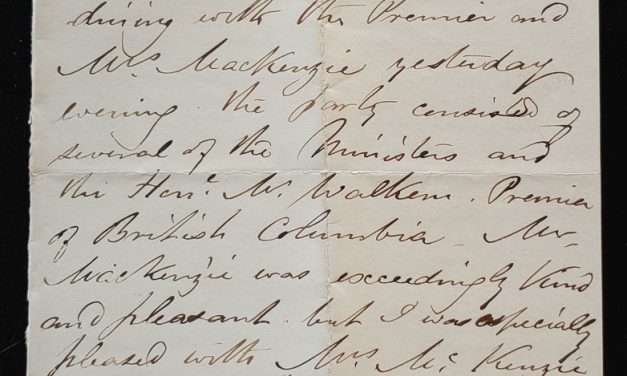 dining with the Premier and
Mrs MacKenzie yesterday
evening. the Party consisted of
several of the Ministers and
the Honl. Mr. Walkem. Premier
of British Columbia - Mr
MacKenzie was exceedingly Kind
and pleasant. but I was especially
pleased with Mrs. McKenzie